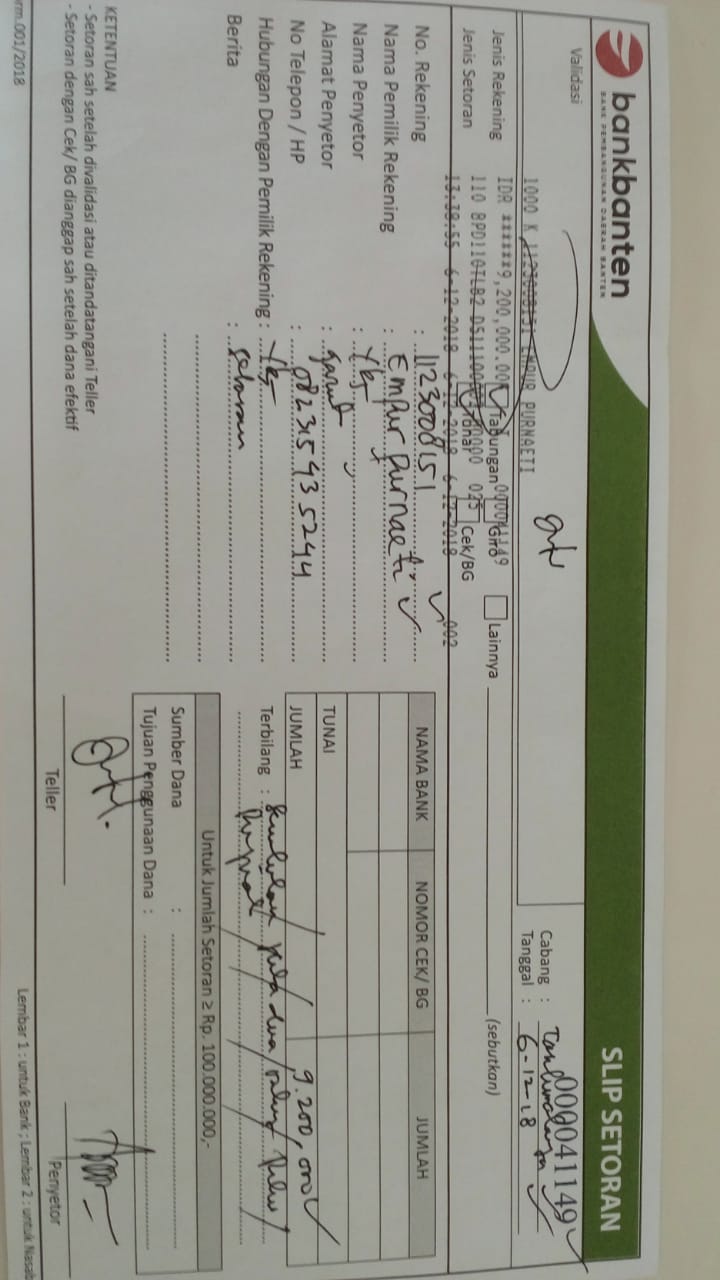 bankbanten
BANK PEMBANGUNAN DAERAH BANTEN
SLIP SETORAN
000041149
Validasi
1000 K 1123008151 EMPUR PURNAETI
IDR ******9,200,000.00 000041149
110 BPD110TLB2 D5111000 0000 025
13.39.55 6-12-2018 6-12-2018 6-12-2018 002
Cabang :
Tanggal : 6-12-18
Jenis Rekening Tabungan Giro Lainnya (sebutkan)
Jenis Setoran Tunai Cek/BG
No. Rekening : 1123008151
Nama Pemilik Rekening : Empur purnaeti
Nama Penyetor : Ybs
Alamat Penyetor : garut
No Telepon / HP : 082315935244
Hubungan Dengan Pemilik Rekening : Ybs
Berita : setoran
NAMA BANK NOMOR CEK/ BG JUMLAH
TUNAI
JUMLAH 9.200,000
Terbilang : Sembilan juta dua ratus ribu
rupiah
Untuk Jumlah Setoran ≥ Rp. 100.000.000,-
Sumber Dana :
Tujuan Penggunaan Dana :
KETENTUAN
- Setoran sah setelah divalidasi atau ditandatangani Teller
- Setoran dengan Cek/ BG dianggap sah setelah dana efektif
Teller
Penyetor
rm.001/2018
Lembar 1 : untuk Bank ; Lembar 2 : untuk Nasab